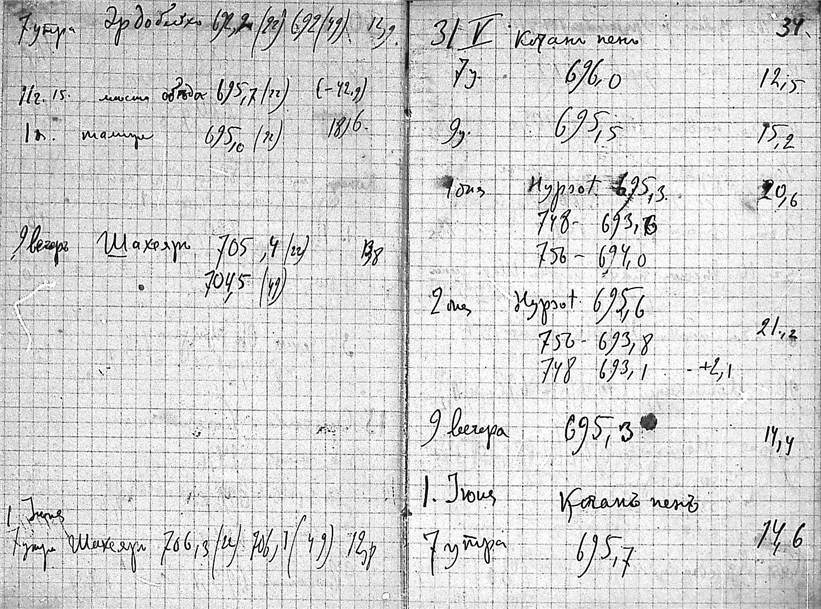 7 утра Эрдобейко 692,2 (22) 692 (49) 12,9
11 ч. 15. место обѣда 695,7 (22) (-42,9)
1 ч. 695,0 (22) 18,6.
9 вечеръ Шахеяръ 705,4 (22) 13,8
704,5 (49)
1. Іюня
7 утра Шахеяръ 706,3 (22) 706,1 (49) 12,9
34.
31 V Котанъ пенъ
7 у. 696,0 12,5
9 у. 695,5 15,2
1 дня Hypsot. 695,3. 20,6
748 - 693,6
756 - 694,0
2 дня Hypsot 695,6
756 - 693,8 21,2
748 693,1 - +2,1
9 вечера 695,3 14,4
1. Іюня Котанъ пенъ
7 утра 695,7 14,6